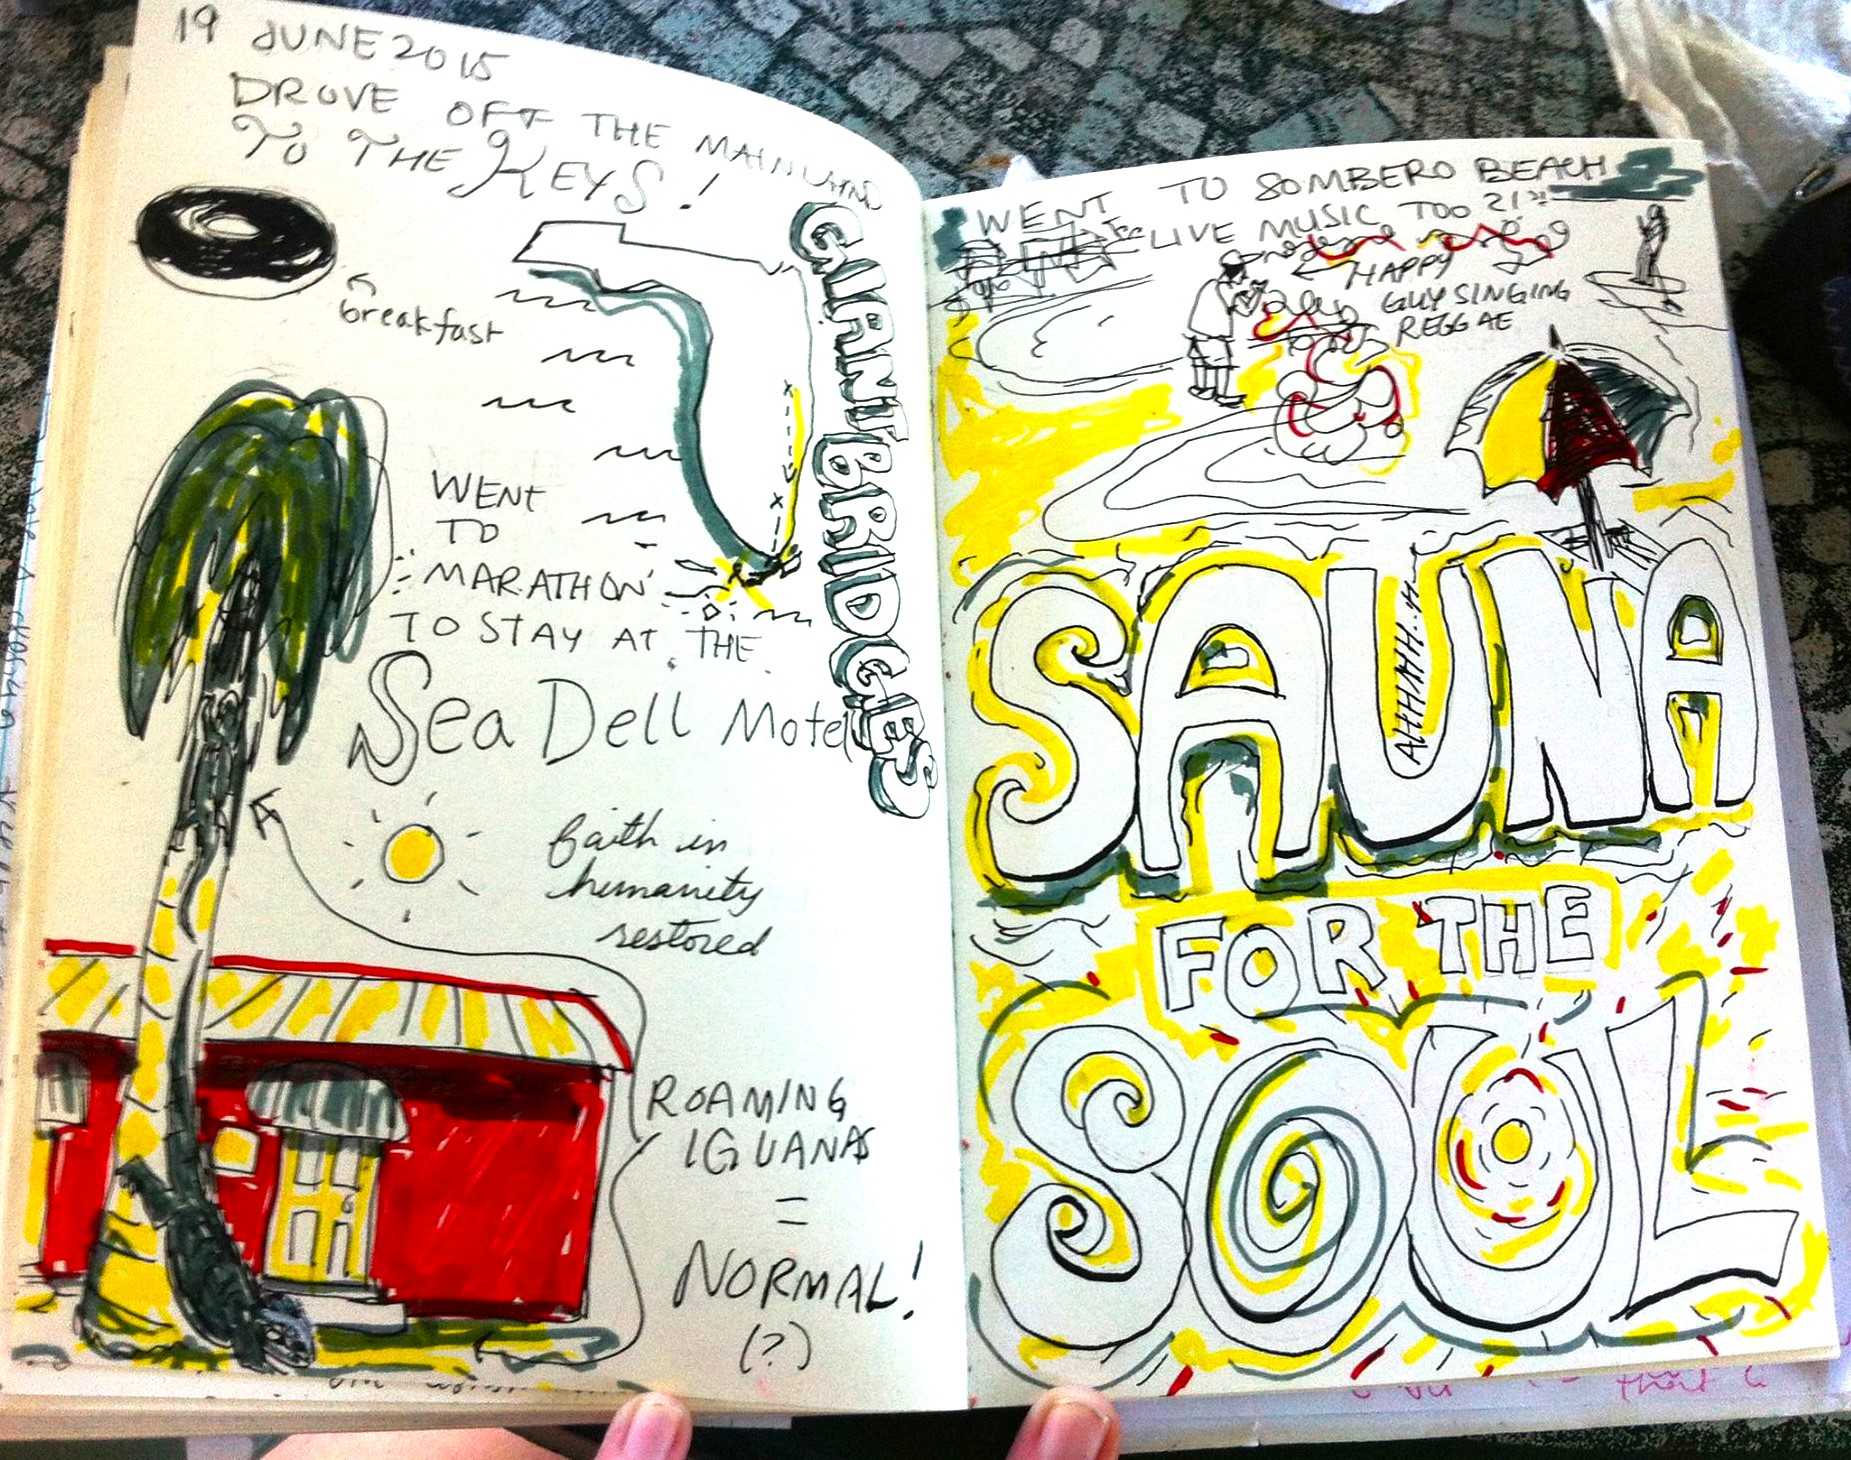 19 JUNE 2015
DROVE OFF THE MAINLAND
TO THE KEYS!
breakfast
GIANT BRIDGES
WENT
TO
MARATHON
TO STAY AT THE
Sea Dell Motel
faith in
humanity
restored
ROAMING
IGUANAS
=
NORMAL!
(?)
WENT TO SOMBERO BEACH
LIVE MUSIC TOO
HAPPY
GUY SINGING
REGGAE
SAUNA
AHHHHH...
FOR THE
SOUL